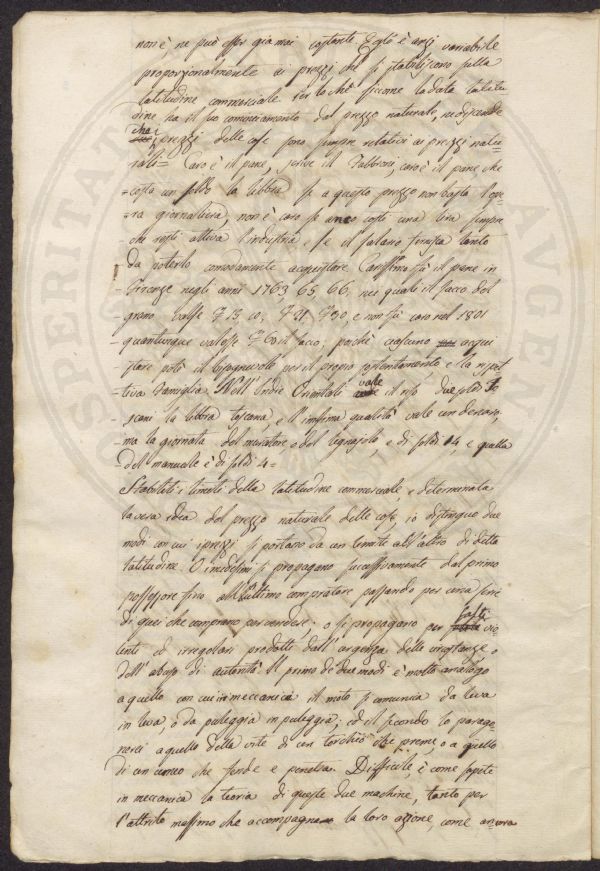 non è, ne può esser giammai costante. Egl'è anzi variabile
proporzionalmente ai prezzi che si stabiliscono sulla
latitudine commerciale. Per lo chè siccome la data latitu
dine ha il suo cominciamento dal prezzo naturale, ne discende
che i prezzi delle cose sono sempre relativi ai prezzi natu-
rali = Caro è il pane, scrive il Fabbroni, caro è il pane che
= costa un soldo la libbra se a questo prezzo non basta l'ope-
= ra giornaliera, non è caro se anco costi una lira sempre
= che resti attiva l'industria, e se il salario fornisca tanto
da poterlo comodamente acquistare. Carissimo fù il pane in
Firenze negli anni 1763 65, 66, nei quali il sacco del
grano valse 13 10, 21, 30, e non fù caro nel 1801
quantunque valesse 60 il sacco; poichè ciascuno acqui
stare potè il bisognevole per il proprio sostentamento e la rispet
tiva Famiglia. Nell'Indie Orientali vale il riso due soldi To
scani la libbra toscana, e l'infima qualità vale un denaro,
ma la giornata del muratore e del legnajolo, è di soldi 14, e quella
= del manuale è di soldi 4 =
Stabiliti i limiti della latitudine commerciale, e determinata
la vera idea del prezzo naturale delle cose, io distinguo due
modi con cui i prezzi si portano da un limite all'altro di detta
latitudine. O i medesimi si propagano successivamente dal primo
possessore fino all'ultimo compratore passando per una serie
di quei che comprano per vendere; o si propagano per salti vio
lenti ed irregolari prodotti dall'urgenza delle circostanze o
dell'abuso di autorità. Il primo de' due modi è molto analogo
a quello con cui in meccanica il moto si comunica da leva
in leva, o da puleggia in puleggia; ed il secondo lo parago-
nerei a quello della vite di un torchio che preme, o a quello
di un cuneo che fende e penetra. Difficile, è come sapete
in meccanica la teoria di queste due machine, tanto per
l'attrito massimo che accompagna la loro azione, come ancora